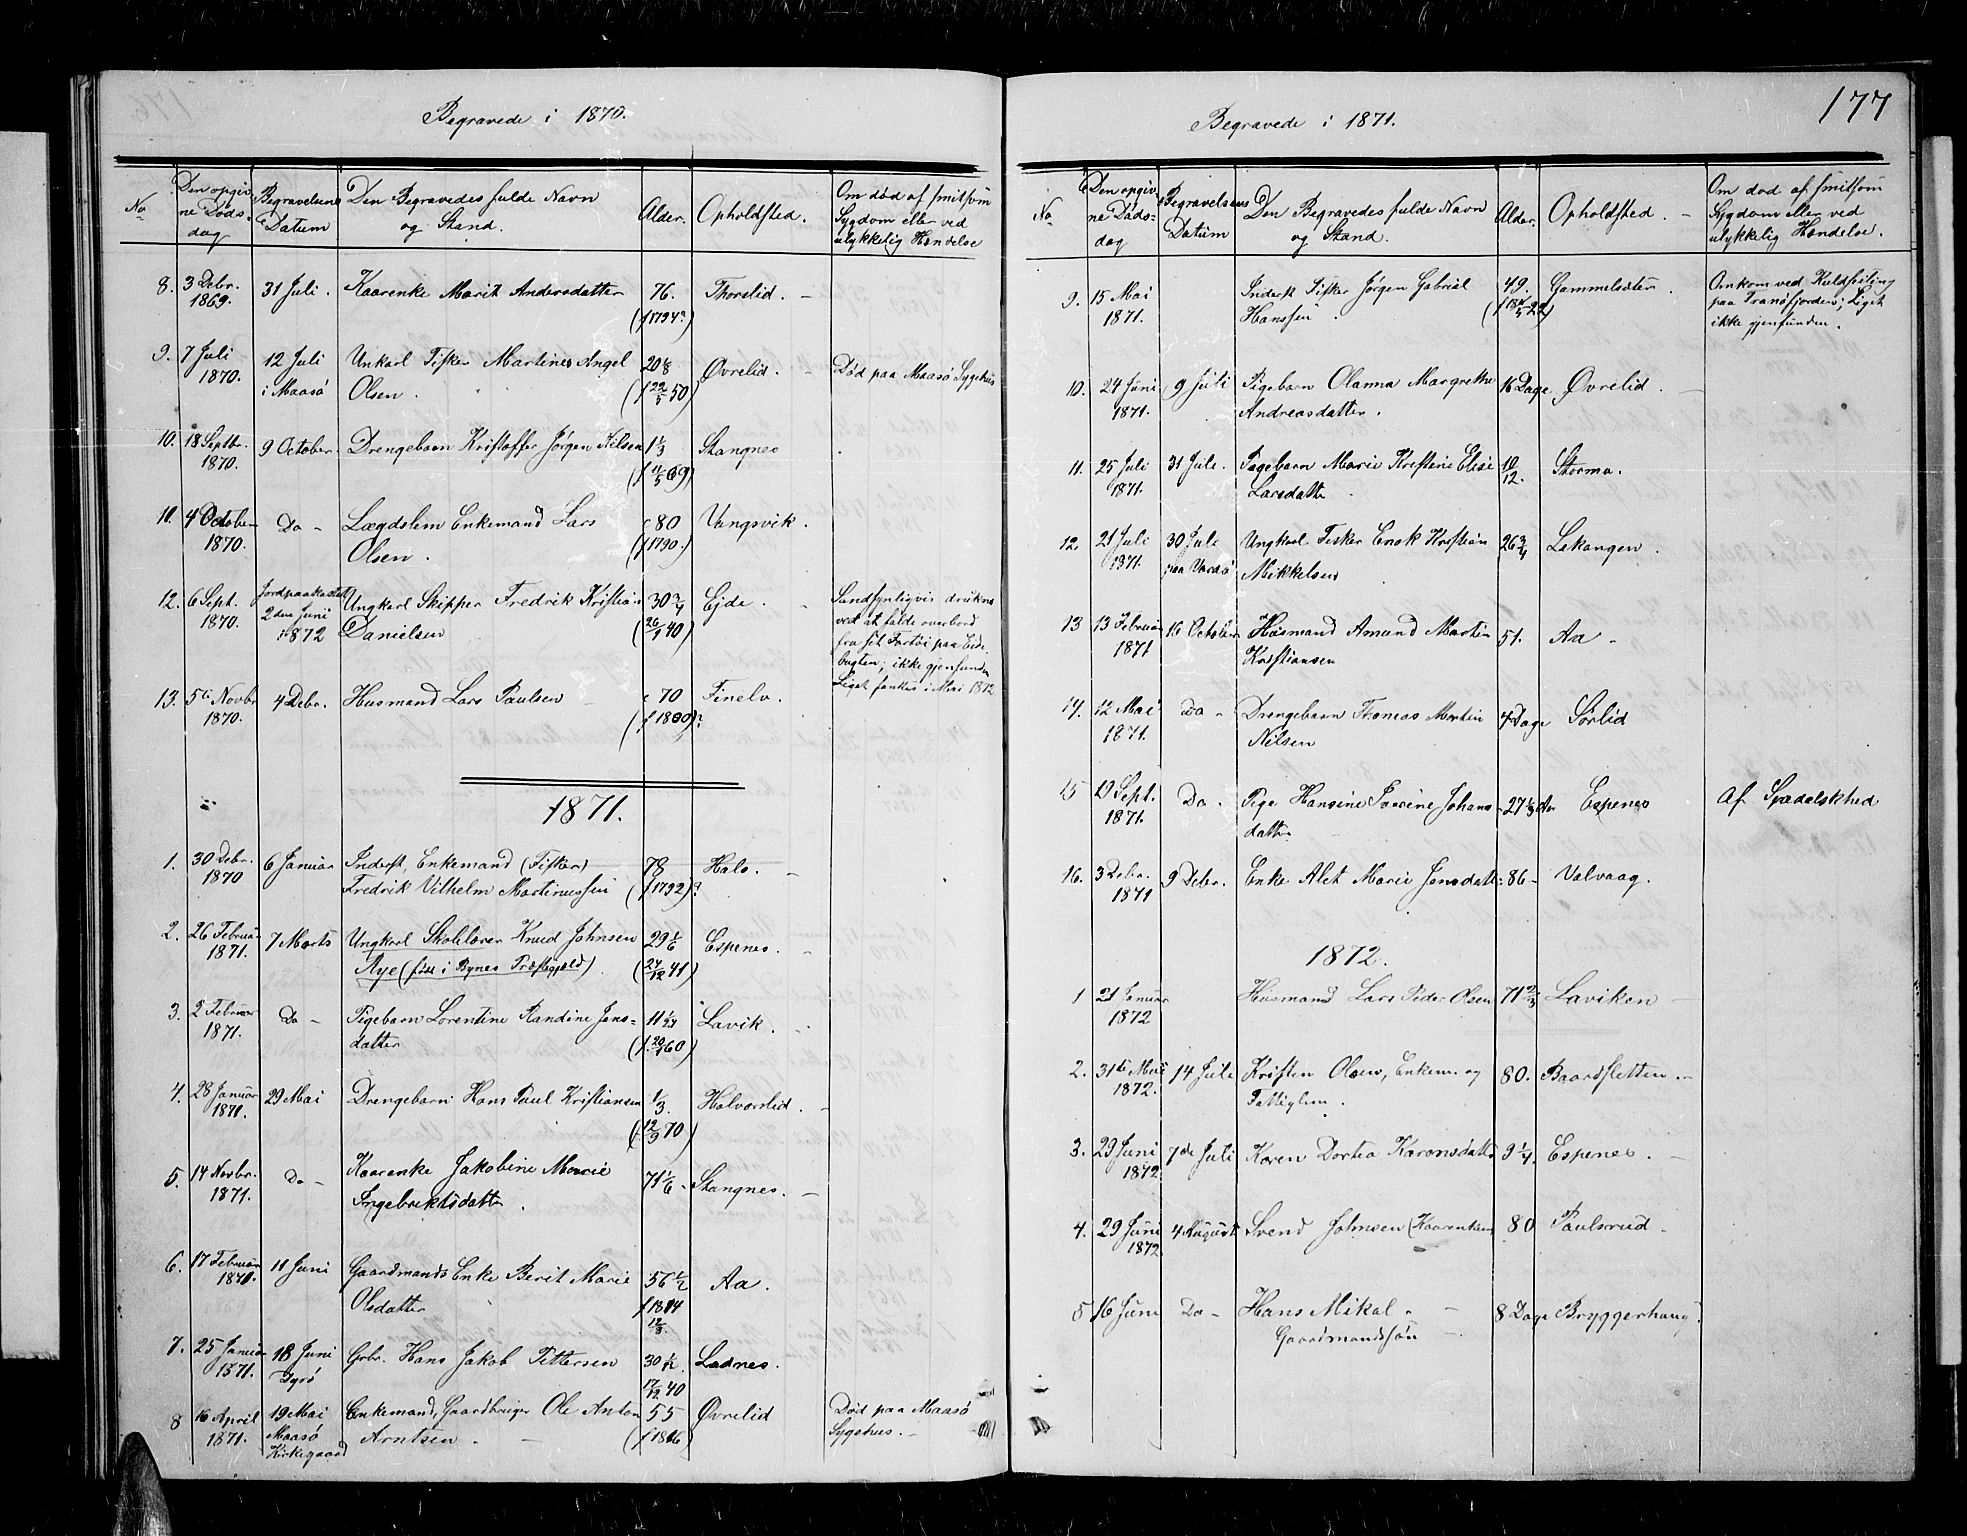 177
Begravede i 1870.
No.
Den opgiv
ne Døds-
dag
Begravelsens
Datum
Den Begravedes fulde Navn
og Stand.
Alder.
Opholdsted.
Om død af smitsom
Sygdom eller ved
ulykkelig Hændelse
8. 3 Debr. 31 Juli. Kaarenke Marit Andersdatter 76. Thorslid. -
1869. (f 1794?)
9. 7 Juli 12 Juli Unkarl Fisker Martines Angel 20 1/8 Øvrelid. - Død paa Maasø Sygehus
1870. i Maasø Olsen. (f 22/5 50)
10. 18 Septbr. 9 October. Drengebarn Kristoffer Jørgen Nilsen 1 1/3 Stangnes
1870. (f 11/5 69)
11. 4 October Do - Lægdslem Enkemand Lars 80 Vangsvik.
1870. Olsen. (f 1790.)
12. 6 Sept. Jordpaakastet Ungkarl Skipper Fredrik Kristian 30 3/4 Ejde. - Sandsynligvis drukne
1870. 2den Juni Danielsen (26/1 40) ved at falde overbord
1872 fra sit Fartøi paa Eide
bugten; ikke gjenfunden
Liget fankes i Mai 1872
13. 5te Novbr 4 Debr. Husmand Lars Paulsen 70 Finelv.
1870. (f 1800)?
1871.
1. 30 Debr. 6 Januar Inderst, Enkemand (Fisker) 78 Halv. -
1870 Fredrik Vilhelm Martinussen (f 1792)?
2. 26 Februar 7 Marts Ungkarl Skolelærer Knud Johnsen 29 1/6 Espenes.
1871. Aye (født i Bynes Præstegjæld). (24/12 41)
3. 2 Februar Do - Pigebarn Lorentine Randine Jens- 11 1/24 Lavik.
1871. datter (f. 20/1 60)
4. 28 Januar 29 Mai Drengebarn Hans Paul Kristiansen 1/3. Halvorslid. -
1871. (12/9 70)
5. 14 Novbr. Do - Kaarenke Jakobine Marie 71 1/6 - Stangnes. -
1871. Ingebriktsdatter.
6. 17 Februar 11 Juni Gaardmands Enke Berit Marie 56 1/2 Aa.
1871. Olsdatter f 1814
12/8.
7. 25 Januar 18 Juni Grbr. Hans Jakob Pettersen 30 1/12. Ladnes.
1871. Dyrø 17/12 40
8 16 April 19 Mai Enkemand, Gaardbruger Ole Anton 55 Øvrelid Død paa Maasø
1871. Maasø Arntsen. - (f 1816) Sygehus. -
Kirkegaard
Begravede i 1871.
No
Den opgiv
ne Døds-
dag
Begravelsens
Datum
Den Begravedes fulde Navn
og Stand.
Alder.
Opholdsted. -
Om død af smitsom
Sygdom eller ved
ulykkelig Hændelse.
9. 15 Mai Inderst Fisker Jørgen Gabriel 49. Gammelsæter. Omkom ved Kuldseiling
1871. Hanssen. paa Tranøfjorden; Liget
ikke gjenfunden.
10. 24 Juni 9 Juli Pigebarn Olanna Margrethe 16 Dage Øvrelid. -
1871. Andreasdatter.
11. 25 Juli 31 Jule. Pigebarn Marie Kristine Elise 10/12. Stormo.
1871. Larsdatter.
12. 21 Juli 30 Juli Ungkarl Fisker Enok Kristian 26 3/4 Lakangen.
1871. paa Vardø Mikkelsen
13 13 Februar 16 October Husmand Amund Martin 51. Aa -
1871 Kristiansen
14. 12 Mai Do - Drengebarn Thomas Martin 4 Dage Sørlid
1871. Nilsen
15 19 Sept. Do - Pige Hansine Johans- 27 1/3 Espenes Af Spedalskhed
1871. datter
16. 3 Debr. 9 Debr. Enke Alet Marie Jensdatt: 86 - Valvaag.
1871
1872.
1 21 Januar Husmand Lars Peder Olsen 71 2/3 Laviken -
1872
2. 31te Mai 14 Juli Kristen Olsen, Enkem. og 80. Baardsletten. -
1872. Fattiglem.
3. 29 Juni 7de Juli Karen Dortea Karensdatt 9 1/4. Espenes. -
1872
4. 29 Juni 4 August Svend Johnsen (Kaarenken) 80 Paulsrud -
1872
5 16 Juni Do - Hans Mikal - 8 Dage Bryggerhaug.
Gaardmandssøn -